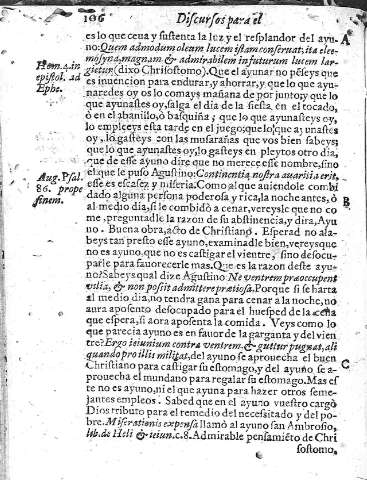 106 Discursos para el
es lo que ceua y sustenta la luz y el resplandor del ayu- A
no: Quem admodum oleum lucem istam conseruat, ita elee
mosyna, magnam & admirabilem in futurum lucem lar-
Hom. 1. in
gietur (dixo Chrisostomo). Que el ayunar no pẽseys que
epistol. ad
es inuencion para endurar, y ahorrar, y que lo que ayu-
Ephe.
naredes oy os lo comays mañana de por junto, y que lo
que ayunastes oy, salga el dia de la fiesta, en el tocado,
ò en el abanillo, ò basquiña; que lo que ayunasteys oy,
lo empleeys esta tarde en el juego: que lo que ayunastes
oy, lo gasteys con las musarañas que vos bien sabeys;
que lo que ayunastes oy, lo gasteys en pleytos otro dia,
que de esse ayuno dire que no merece esse nombre, sino
el que le puso Agustino: Continentia nostra auaritia erit,
Aug. Psal.
esse es escasez y miseria. Como al que auiendole combi
86. prope
dado alguna persona poderosa y rica, la noche antes, ò B
finem.
al medio dia, si le combidò a cenar, vereysle que no co
me, preguntadle la razon de su abstinencia, y dira, Ayu
no. Buena obra, acto de Christiano. Esperad no ala-
beys tan presto esse ayuno, examinadle bien, vereys que
no es ayuno, que no es castigar el vientre, sino desocu-
parle para fauorecerle mas. Que es la razon deste ayu-
no? Sabeys qual dize Agustino Ne ventrem præoccupent
vilia, & non possit admittere pratiosa. Porque si se harta
al medio dia, no tendra gana para cenar a la noche, no
aura aposento desocupado para el huesped de la cena
que espera, si aora aposenta la comida. Veys como lo
que parecia ayuno es en fauor de la garganta y del vien
tre? Ergo ieiunium contra ventrem, & guttur pugnat, ali
quando pro illis militat, del ayuno se aprouecha el buen C
Christiano para castigar su estomago, y del ayuno se a-
prouecha el mundano para regalar su estomago. Mas es
te no es ayuno, ni el que ayuna para hazer otros seme-
jantes empleos. Sabed que en el ayuno vuestro cargò
Dios tributo para el remedio del necesitado y del po-
bre. Miserationis expensa llamò al ayuno san Ambrosio,
lib. de Heli & ieiun. c. 8. Admirable pensamiẽto de Chri
sostomo,